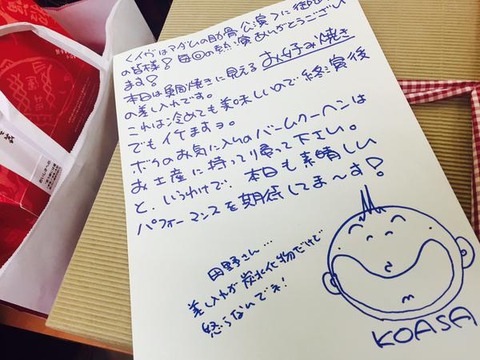 くイヴはマダムの肋骨公演〉に御出
の皆様！毎回の熱演ありがとうござい
ます！
本日は今川焼きに見えるお好み焼き
の差し入れです。
これは冷めても美味しいので終演後
でもイケますョ。
ボクのお気に入りのバームクーヘンは
お土産に持って帰って下さい。
と、いうわけで、本日も素晴しい
パフォーマンスを期待してま〜す！
田野さん…
差し入れが炭水化物だけど
怒らないでネ！
KOASA